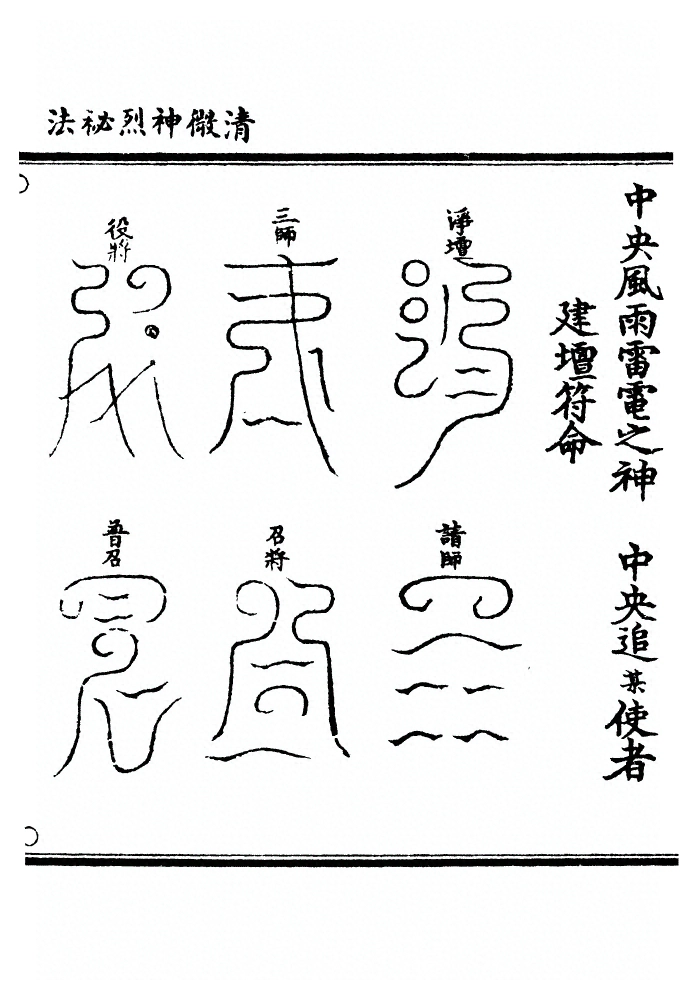 清微神烈祕法
中央風雨雷電之神　中央追某使者
建壇符命
淨壇
請師
三師
召將
役將
普召